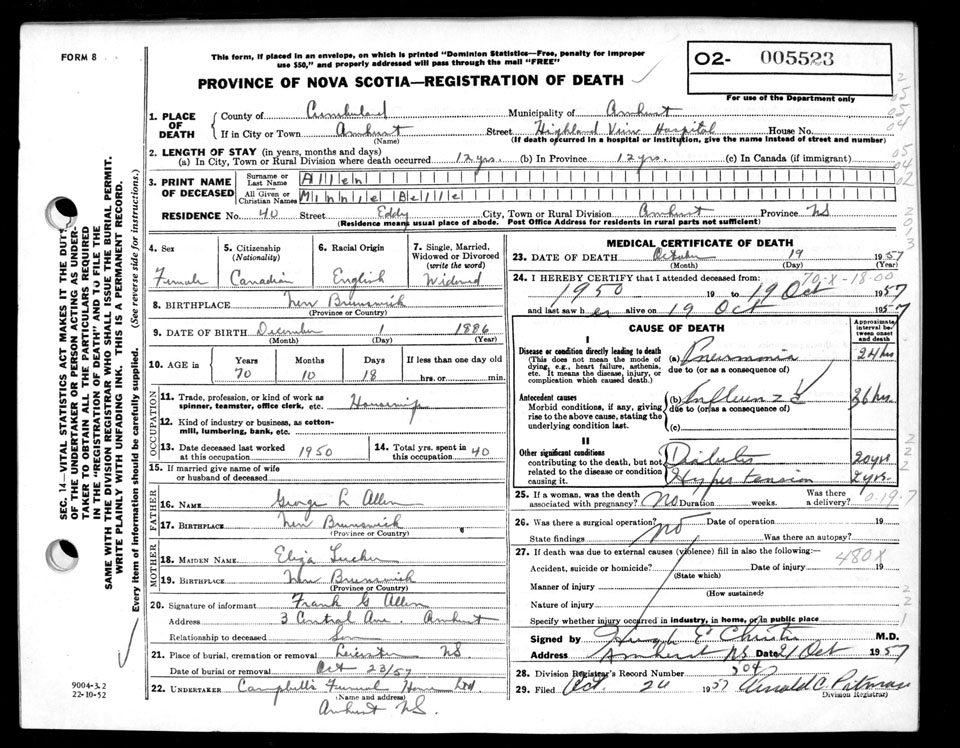 FORM 8
This form, if placed in an envelope, on which is printed "Dominion Statistics—Free, penalty for improper
use $50," and properly addressed will pass through the mail "FREE"
PROVINCE OF NOVA SCOTIA—REGISTRATION OF DEATH
02- 005523
For use of the Department only
1. PLACE OF DEATH
County of Cumberland Municipality of Amherst
If in City or Town Amherst Street Highland View Hospital House No.
(Name) (If death occurred in a hospital or institution, give the name instead of street and number)
2. LENGTH OF STAY (in years, months and days)
(a) In City, Town or Rural Division where death occurred 12 yrs. (b) In Province 12 yrs. (c) In Canada (if immigrant)
3. PRINT NAME OF DECEASED
Surname or Last Name Allen
All Given or Christian Names Minnie Belle
RESIDENCE No. 40 Street Eddy City, Town or Rural Division Amherst Province NS
(Residence means usual place of abode. Post Office Address for residents in rural parts not sufficient)
4. Sex Female
5. Citizenship (Nationality) Canadian
6. Racial Origin English
7. Single, Married, Widowed or Divorced (write the word) Widowed
8. BIRTHPLACE New Brunswick
(Province or Country)
9. DATE OF BIRTH December 1 1886
(Month) (Day) (Year)
10. AGE in Years 70 Months 10 Days 18 If less than one day old hrs. or min.
OCCUPATION
11. Trade, profession, or kind of work as
spinner, teamster, office clerk, etc. Housewife
12. Kind of industry or business, as cotton-
mill, lumbering, bank, etc.
13. Date deceased last worked at this occupation 1950
14. Total yrs. spent in this occupation 40
15. If married give name of wife
or husband of deceased
FATHER
16. NAME George L Allen
17. BIRTHPLACE New Brunswick
(Province or Country)
MOTHER
18. MAIDEN NAME Eliza
19. BIRTHPLACE New Brunswick
(Province or Country)
20. Signature of informant Frank G Allen
Address 3 Central Ave. Amherst
Relationship to deceased Son
21. Place of burial, cremation or removal Leicester NS
Date of burial or removal Oct 23/57
22. UNDERTAKER Campbell's Funeral Home Ltd
(Name and address)
Amherst NS.
MEDICAL CERTIFICATE OF DEATH
23. DATE OF DEATH October 19 1957
(Month) (Day) (Year)
24. I HEREBY CERTIFY that I attended deceased from:
70-X-18-00
1950 19 to 19 Oct 1957
and last saw her alive on 19 Oct 1957
CAUSE OF DEATH
Approximate interval between onset and death
I
Disease or condition directly leading to death (a) Pneumonia 24 hrs
(This does not mean the mode of dying, e.g., heart failure, asthenia, etc. It means the disease, injury, or complication which caused death.)
due to (or as a consequence of)
Antecedent causes (b) Influenza 36 hrs.
Morbid conditions, if any, giving rise to the above cause, stating the underlying condition last.
due to (or as a consequence of)
(c)
II
Other significant conditions
contributing to the death, but not related to the disease or condition causing it.
Diabetes 20 yrs
Hypertension 2 yrs.
25. If a woman, was the death
associated with pregnancy? No Duration weeks. Was there a delivery?
26. Was there a surgical operation? No Date of operation 19
State findings Was there an autopsy?
27. If death was due to external causes (violence) fill in also the following:—
480X
Accident, suicide or homicide? Date of injury 19
(State which)
Manner of injury
(How sustained)
Nature of injury
Specify whether injury occurred in industry, in home, or in public place
Signed by Hugh E Christie M.D.
Address Amherst NS Date 21 Oct 1957
28. Division Registrar's Record Number 304
29. Filed Oct. 24 1957 Arnold C. Pitman
Division Registrar
SEC. 14—VITAL STATISTICS ACT MAKES IT THE DUTY
OF THE UNDERTAKER OR PERSON ACTING AS UNDER-
TAKER TO OBTAIN ALL THE PARTICULARS REQUIRED
IN THE "REGISTRATION OF DEATH" AND TO FILE THE
SAME WITH THE DIVISION REGISTRAR WHO SHALL ISSUE THE BURIAL PERMIT.
WRITE PLAINLY WITH UNFADING INK. THIS IS A PERMANENT RECORD.
Every item of information should be carefully supplied. (See reverse side for instructions.)
9004-3.2
22-10-52